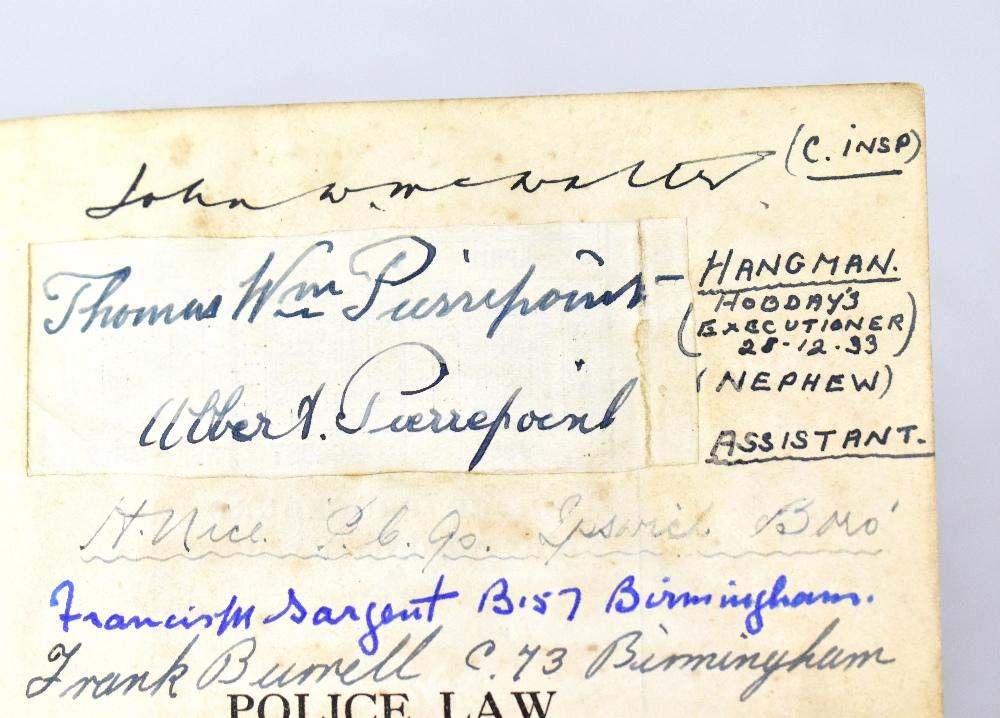 John W. McWalter (C. INSP)
Thomas Wm Pierrepoint - HANGMAN.
(HOBDAY'S
EXECUTIONER
28-12-33)
(NEPHEW)
Albert. Pierrepoint ASSISTANT.
H. Nice P.C. 90. Ipswich Boro'
Francis M Sargent B.57 Birmingham.
Frank Burrell C.73 Birmingham
POLICE LAW